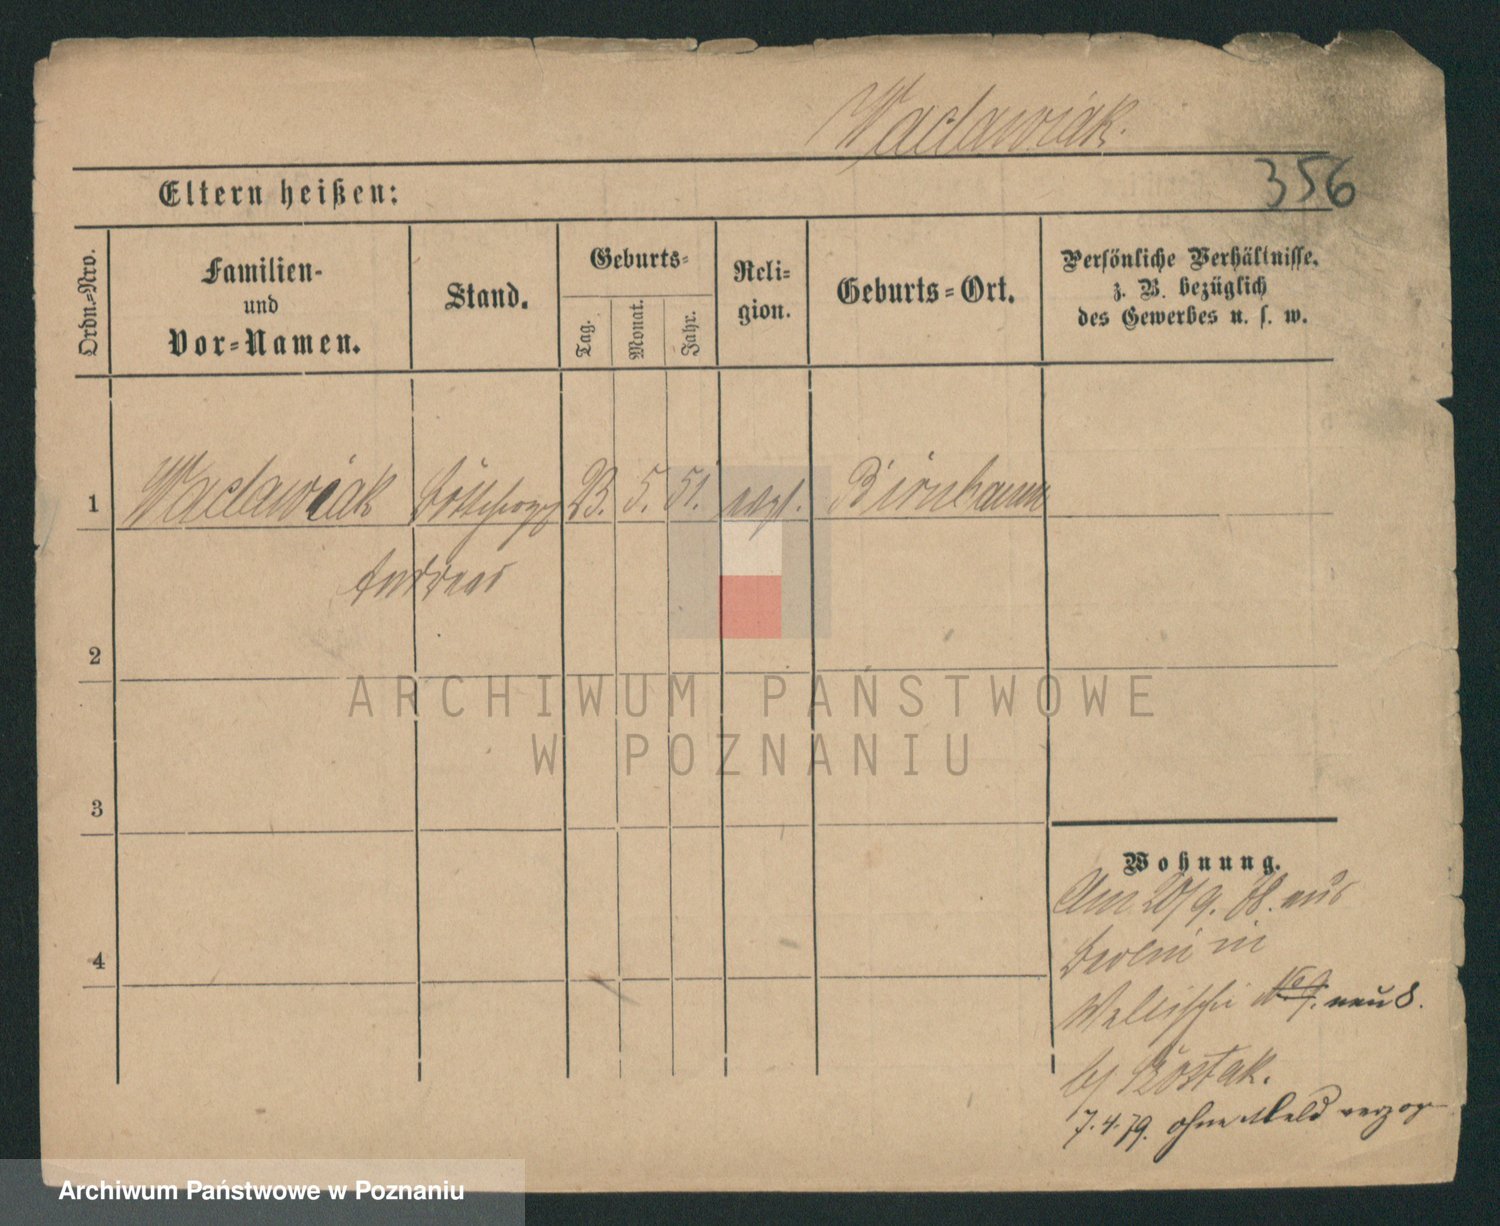 Waclawiak.
356
Eltern heißen:
Ordn.-Nro.
Familien-
und
Vor-Namen.
Stand.
Geburts-
Tag.
Monat.
Jahr.
Reli-
gion.
Geburts-Ort.
Persönliche Verhältnisse,
z. B. bezüglich
des Gewerbes u. s. w.
1 Waclawiak 23. 5. 51. Birnbaum
Andreas
2
3
4
Wohnung.
Am 20/9. 78. aus
Berlin in
Wallischei neu 8.
b/
7.4.79. ohne Meld verzog
ARCHIWUM PAŃSTWOWE
W POZNANIU
Archiwum Państwowe w Poznaniu